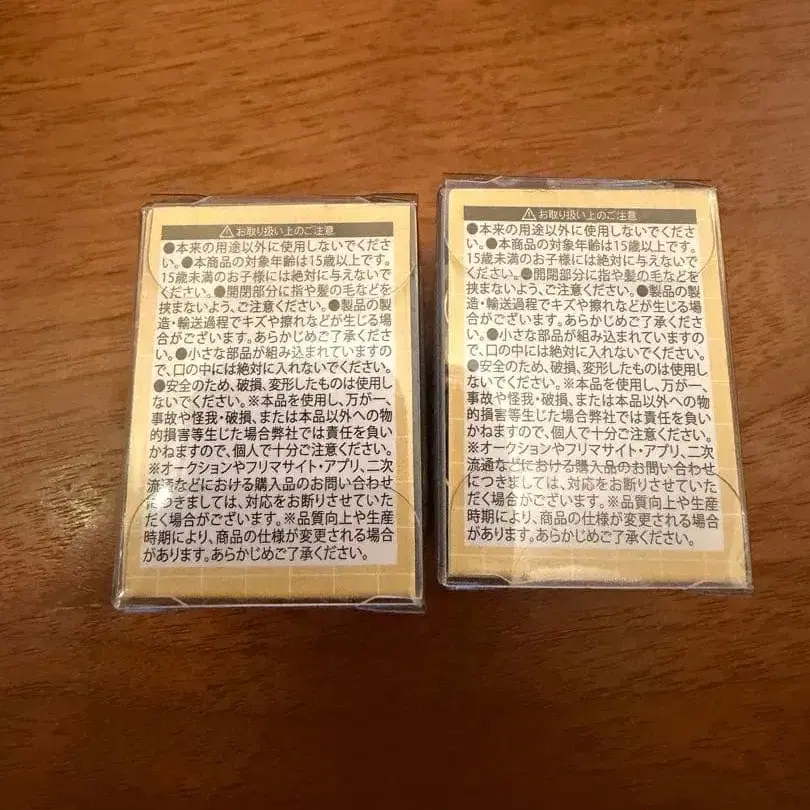 お取り扱い上のご注意
●本来の用途以外に使用しないでくださ
い。●本商品の対象年齢は15歳以上です。
15歳未満のお子様には絶対に与えないで
ください。●開閉部分に指や髪の毛などを
挟まないよう、ご注意ください。●製品の製
造・輸送過程でキズや擦れなどが生じる場
合がございます。あらかじめご了承くださ
い。●小さな部品が組み込まれていますの
で、口の中には絶対に入れないでください。
●安全のため、破損、変形したものは使用し
ないでください。※本品を使用し、万が一、
事故や怪我・破損、または本品以外への物
的損害等生じた場合弊社では責任を負い
かねますので、個人で十分ご注意ください。
※オークションやフリマサイト・アプリ、二次
流通などにおける購入品のお問い合わせ
につきましては、対応をお断りさせていた
だく場合がございます。※品質向上や生産
時期により、商品の仕様が変更される場合
があります。あらかじめご了承ください。
お取り扱い上のご注意
●本来の用途以外に使用しないでくださ
い。●本商品の対象年齢は15歳以上です。
15歳未満のお子様には絶対に与えないで
ください。●開閉部分に指や髪の毛などを
挟まないよう、ご注意ください。●製品の製
造・輸送過程でキズや擦れなどが生じる場
合がございます。あらかじめご了承くださ
い。●小さな部品が組み込まれていますの
で、口の中には絶対に入れないでください。
●安全のため、破損、変形したものは使用し
ないでください。※本品を使用し、万が一、
事故や怪我・破損、または本品以外への物
的損害等生じた場合弊社では責任を負い
かねますので、個人で十分ご注意ください。
※オークションやフリマサイト・アプリ、二次
流通などにおける購入品のお問い合わせ
につきましては、対応をお断りさせていた
だく場合がございます。※品質向上や生産
時期により、商品の仕様が変更される場合
があります。あらかじめご了承ください。